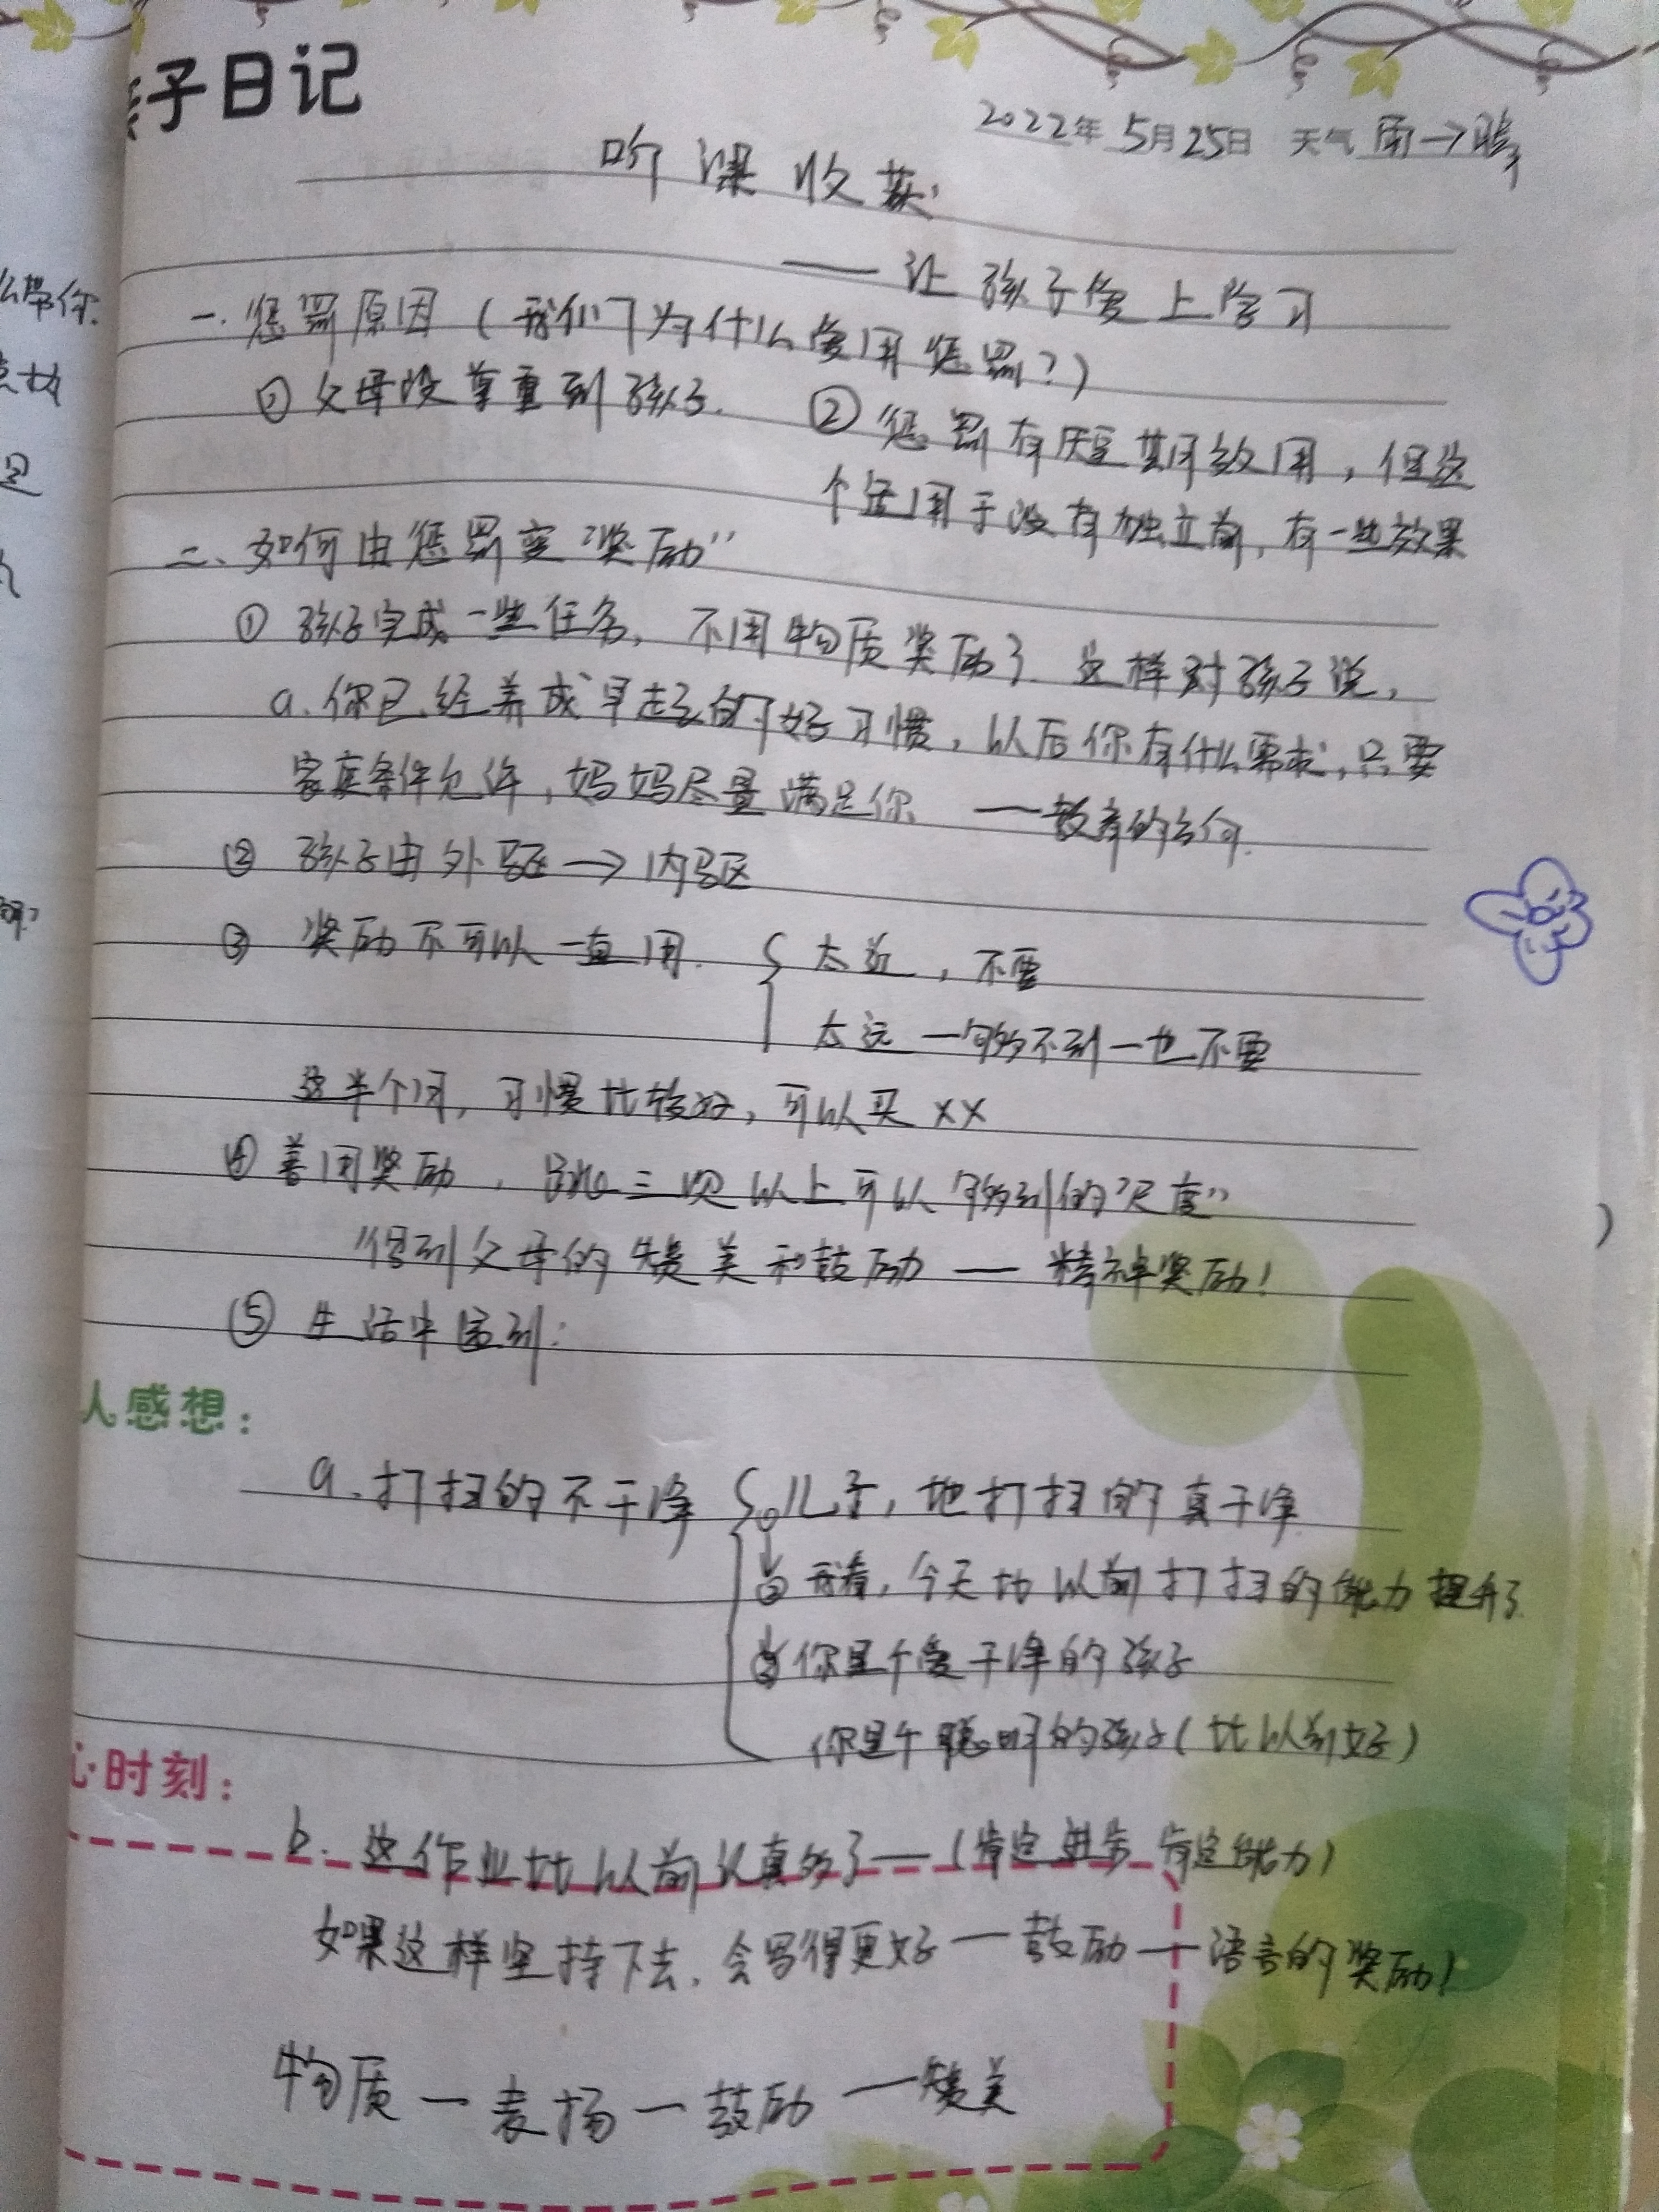 子日记
2022年5月25日 天气 雨→晴
听课收获
——让孩子爱上学习
一.惩罚原因(我们为什么爱用惩罚?)
①父母没尊重到孩子. ②惩罚有短期效用,但这
个适用于没有独立前,有一些效果
二、如何由惩罚变"奖励"
①孩子完成一些任务,不用物质奖励了.这样对孩子说,
a.你已经养成早起的好习惯,以后你有什么需求,只要
家庭条件允许,妈妈尽量满足你 ——教育的方向.
②孩子由外驱→内驱
③奖励不可以一直用. { 太近,不要
太远—够不到—也不要
这半个月,习惯比较好,可以买××
④善用奖励,跳三次以上可以够到的"尺度"
"得到父母的赞美和鼓励——精神奖励!
⑤生活中遇到:
人感想:
a.打扫的不干净 { ①儿子,地打扫的真干净
②我看,今天比以前打扫的能力提升了
③你是个爱干净的孩子
你是个聪明的孩子(比以前好)
心时刻:
b.这作业比以前认真多了—(肯定进步 肯定能力)
如果这样坚持下去,会写得更好—鼓励—语言的奖励)
物质—表扬—鼓励—赞美